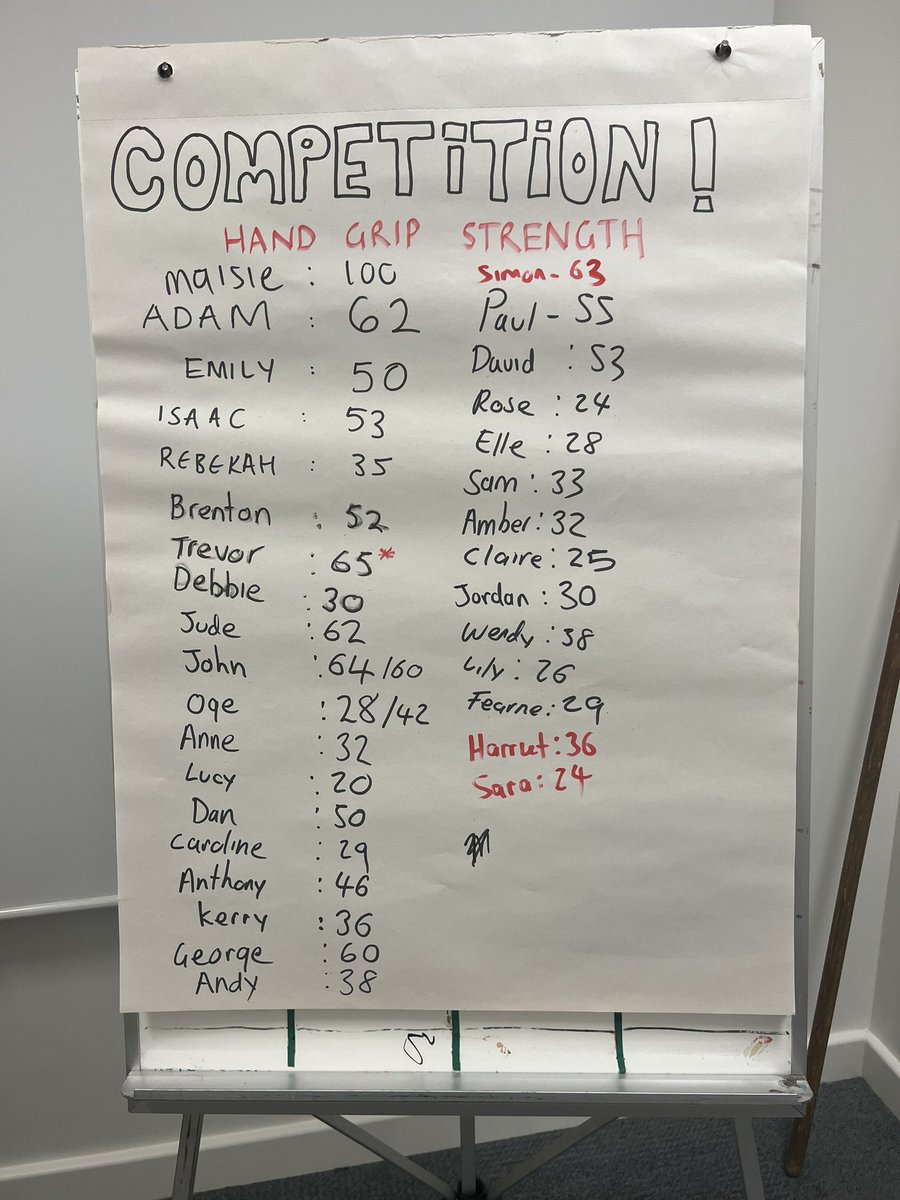 COMPETITION!
HAND GRIP STRENGTH
maisie : 100
ADAM : 62
EMILY : 50
ISAAC : 53
REBEKAH : 35
Brenton : 52
Trevor : 65*
Debbie : 30
Jude : 62
John : 64/60
Oge : 28/42
Anne : 32
Lucy : 20
Dan : 50
Caroline : 29
Anthony : 46
kerry : 36
George : 60
Andy : 38
Simon - 63
Paul - 55
David : 53
Rose : 24
Elle : 28
Sam : 33
Amber : 32
Claire : 25
Jordan : 30
Wendy : 38
Lily : 26
Fearne : 29
Harriet : 36
Sara : 24